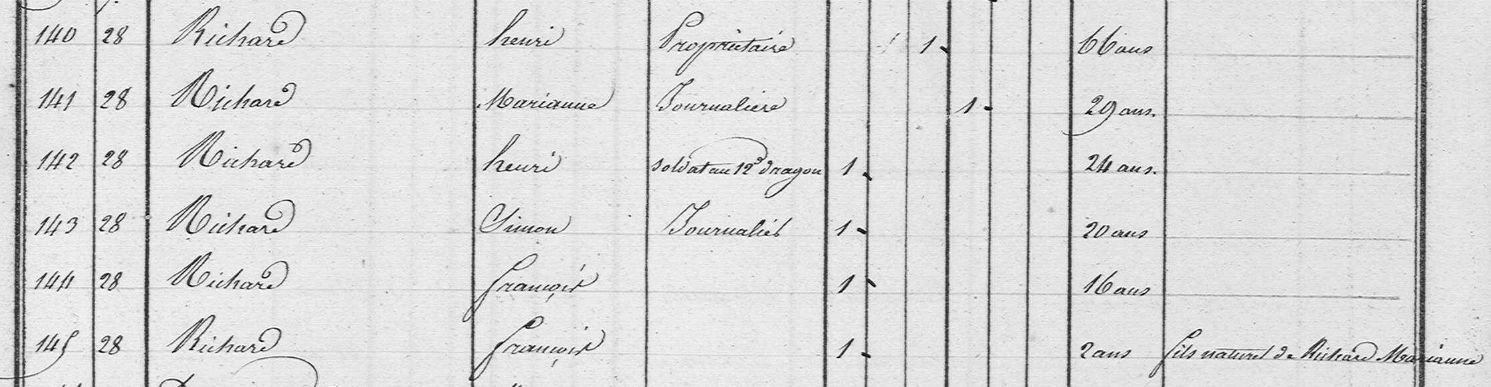 140 28 Richard henri Propriétaire 1 66 ans
141 28 Richard Marianne Journalière 1 29 ans.
142 28 Richard henri soldat au 12e dragon 1 24 ans.
143 28 Richard Simon Journalier 1 20 ans
144 28 Richard françois 1 16 ans
145 28 Richard françois 1 2 ans fils naturel de Richard Marianne